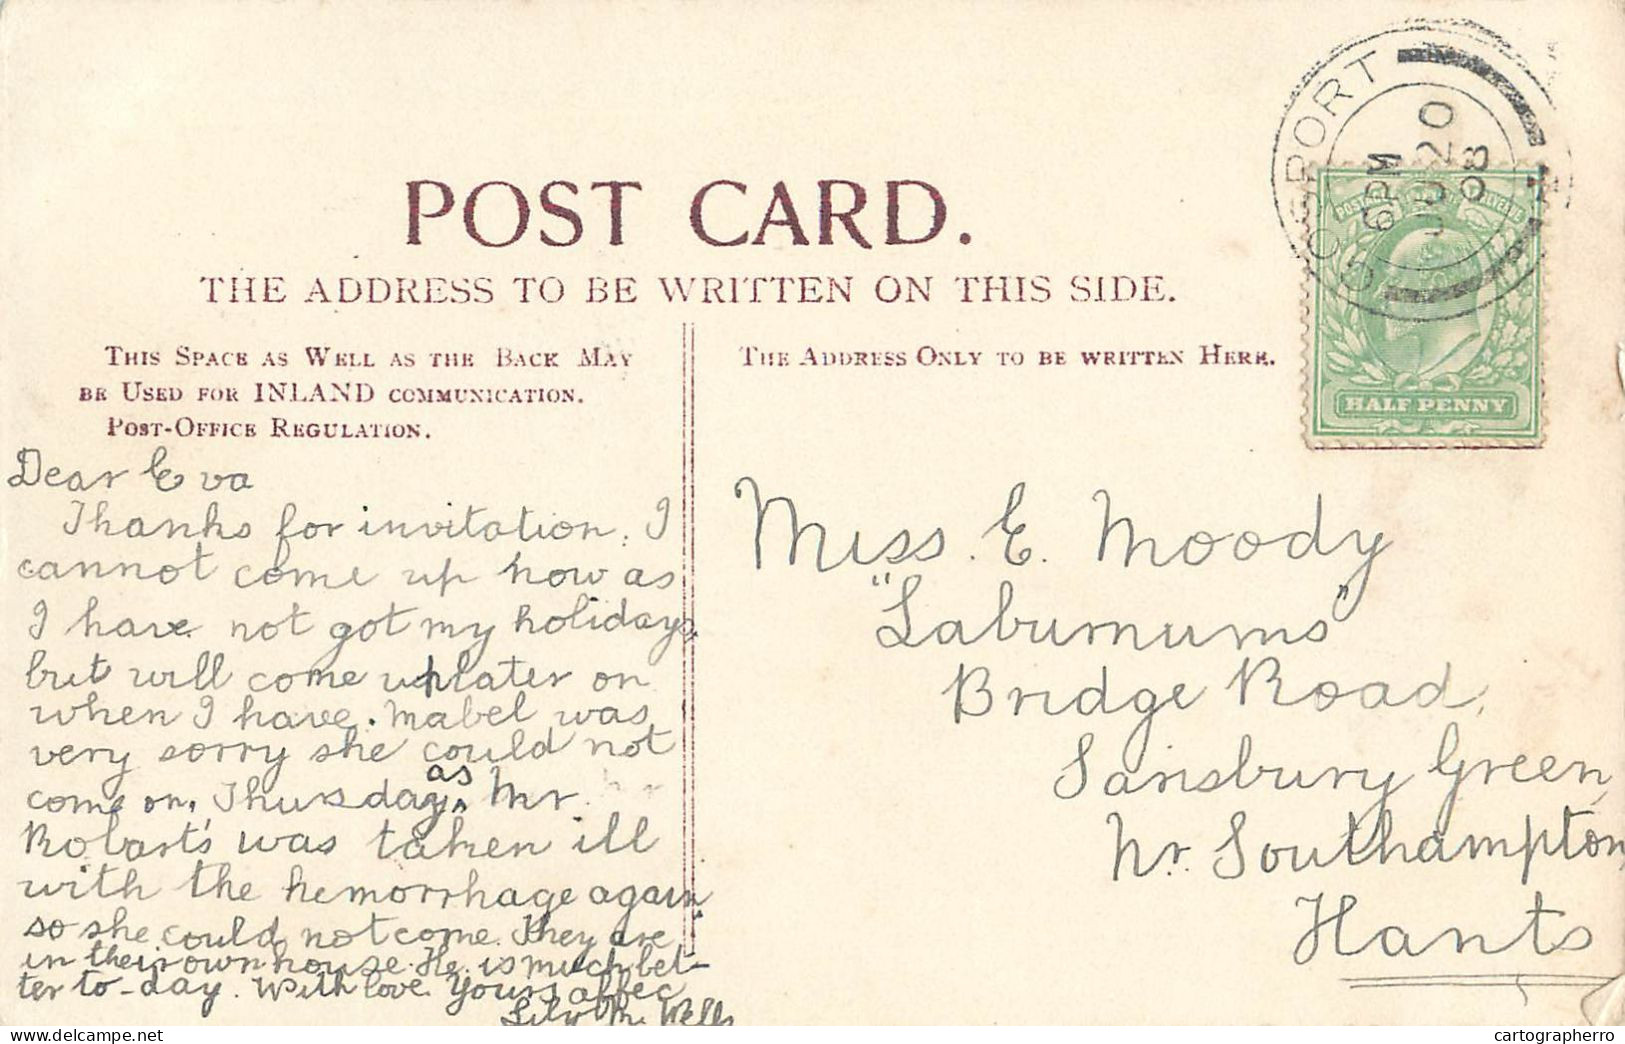 POST CARD.
THE ADDRESS TO BE WRITTEN ON THIS SIDE.
THIS SPACE AS WELL AS THE BACK MAY
BE USED FOR INLAND COMMUNICATION.
POST-OFFICE REGULATION.
THE ADDRESS ONLY TO BE WRITTEN HERE.
GOSPORT
6 PM
JU 20
08
HALF PENNY
Dear Eva
Thanks for invitation. I
cannot come up now as
I have not got my holidays
but will come up later on
when I have. Mabel was
very sorry she could not
come on, Thursday, as Mr
Robart's was taken ill
with the hemorrhage again
so she could not come. They are
in their own house. He is much bet-
ter to-day. With love. Yours affec
Lily M. Wells
Miss. E. Moody
"Laburnums"
Bridge Road,
Sarisbury Green,
Nr. Southampton,
Hants
delcampe.net
cartographerro